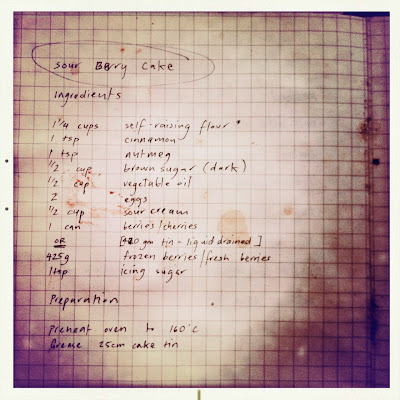 Sour Berry Cake
Ingredients
1 1/4 cups self-raising flour *
1 tsp cinnamon
1 tsp nutmeg
1/2 cup brown sugar (dark)
1/2 cup vegetable oil
2 eggs
1/2 cup sour cream
1 can berries/cherries
OR [420 gm tin - liquid drained]
425g frozen berries/fresh berries
1 tsp icing sugar
Preparation
Preheat oven to 160°C
Grease 25cm cake tin